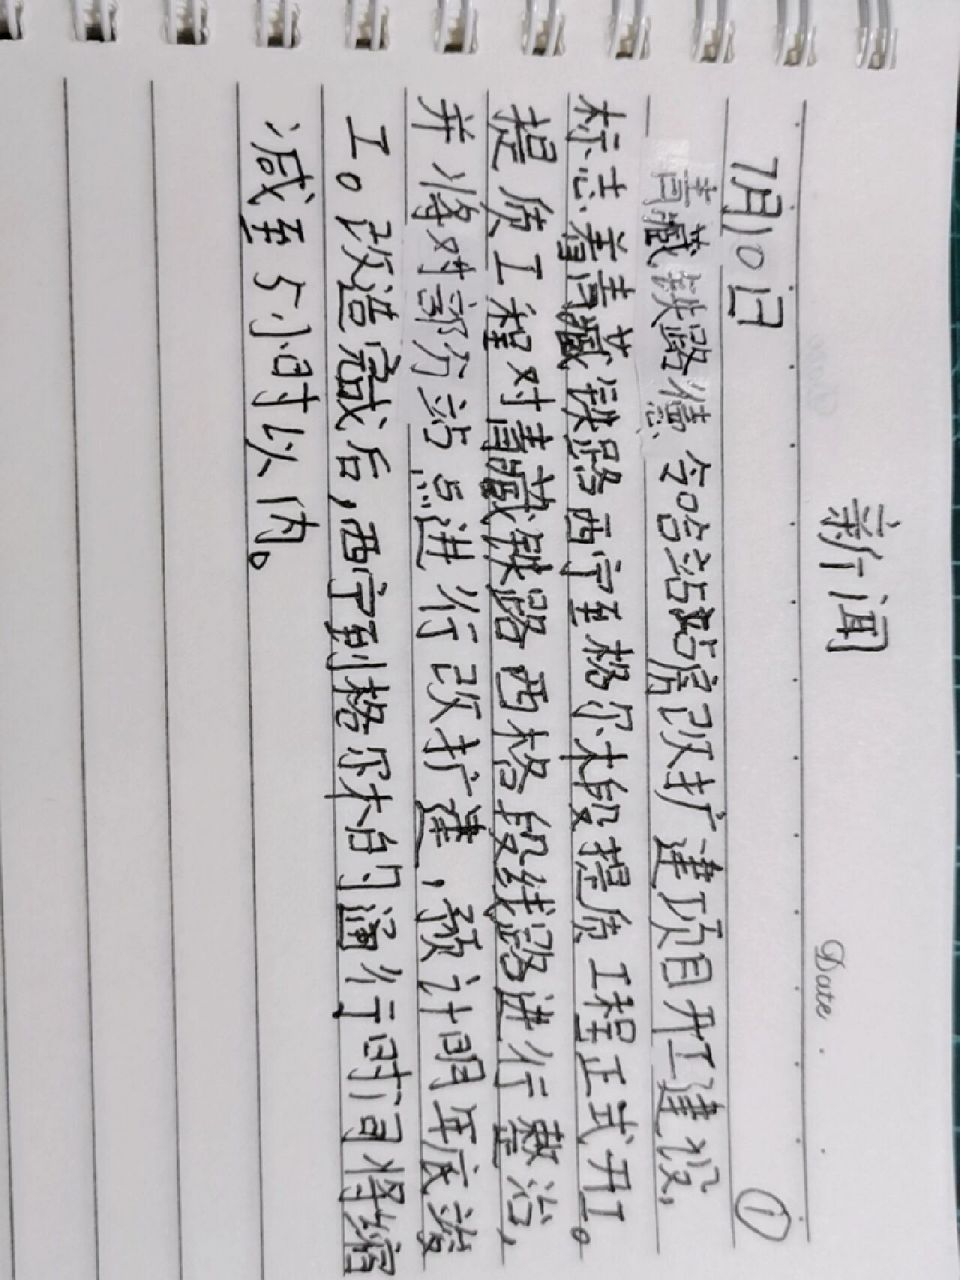 新闻
Date
7月10日 ①
青藏铁路德令哈站站房改扩建项目开工建设,
标志着青藏铁路西宁至格尔木段提质工程正式开工。
提质工程对青藏铁路西格段线路进行整治,
并将对部分站点进行改扩建,预计明年底竣
工。改造完成后,西宁到格尔木的通行时间将缩
减至5小时以内。